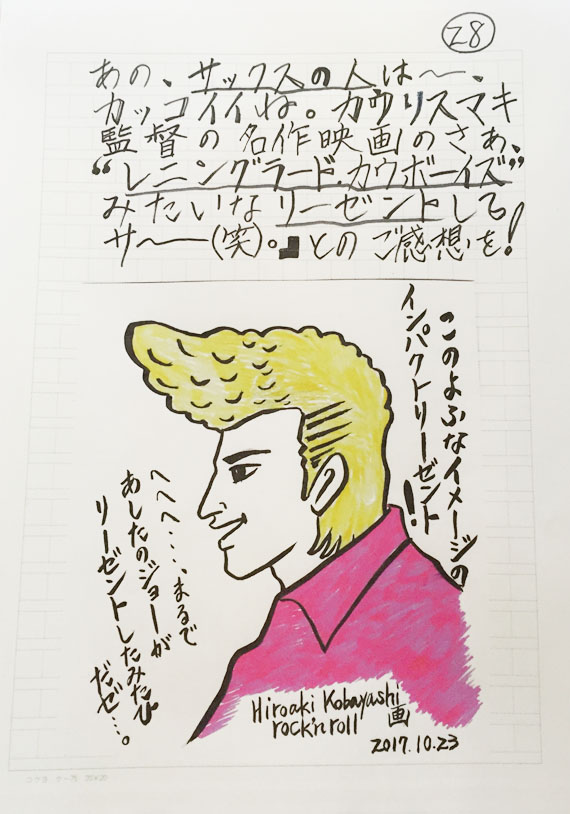 28
あの、サックスの人は〜、
カッコイイね。カウリスマキ
監督の名作映画のさぁ、
“レニングラード.カウボーイズ”
みたいなリーゼントしてる
サ〜―(笑)。■とのご感想を!
このよふなイメージの
インパクトリーゼント!
へへへ・・・、まるで
あしたのジョーが
リーゼントしたみたひ
だゼ・・・。
Hiroaki Kobayashi
rock'n roll 画
2017.10.23
コクヨ ケ-75 20×20